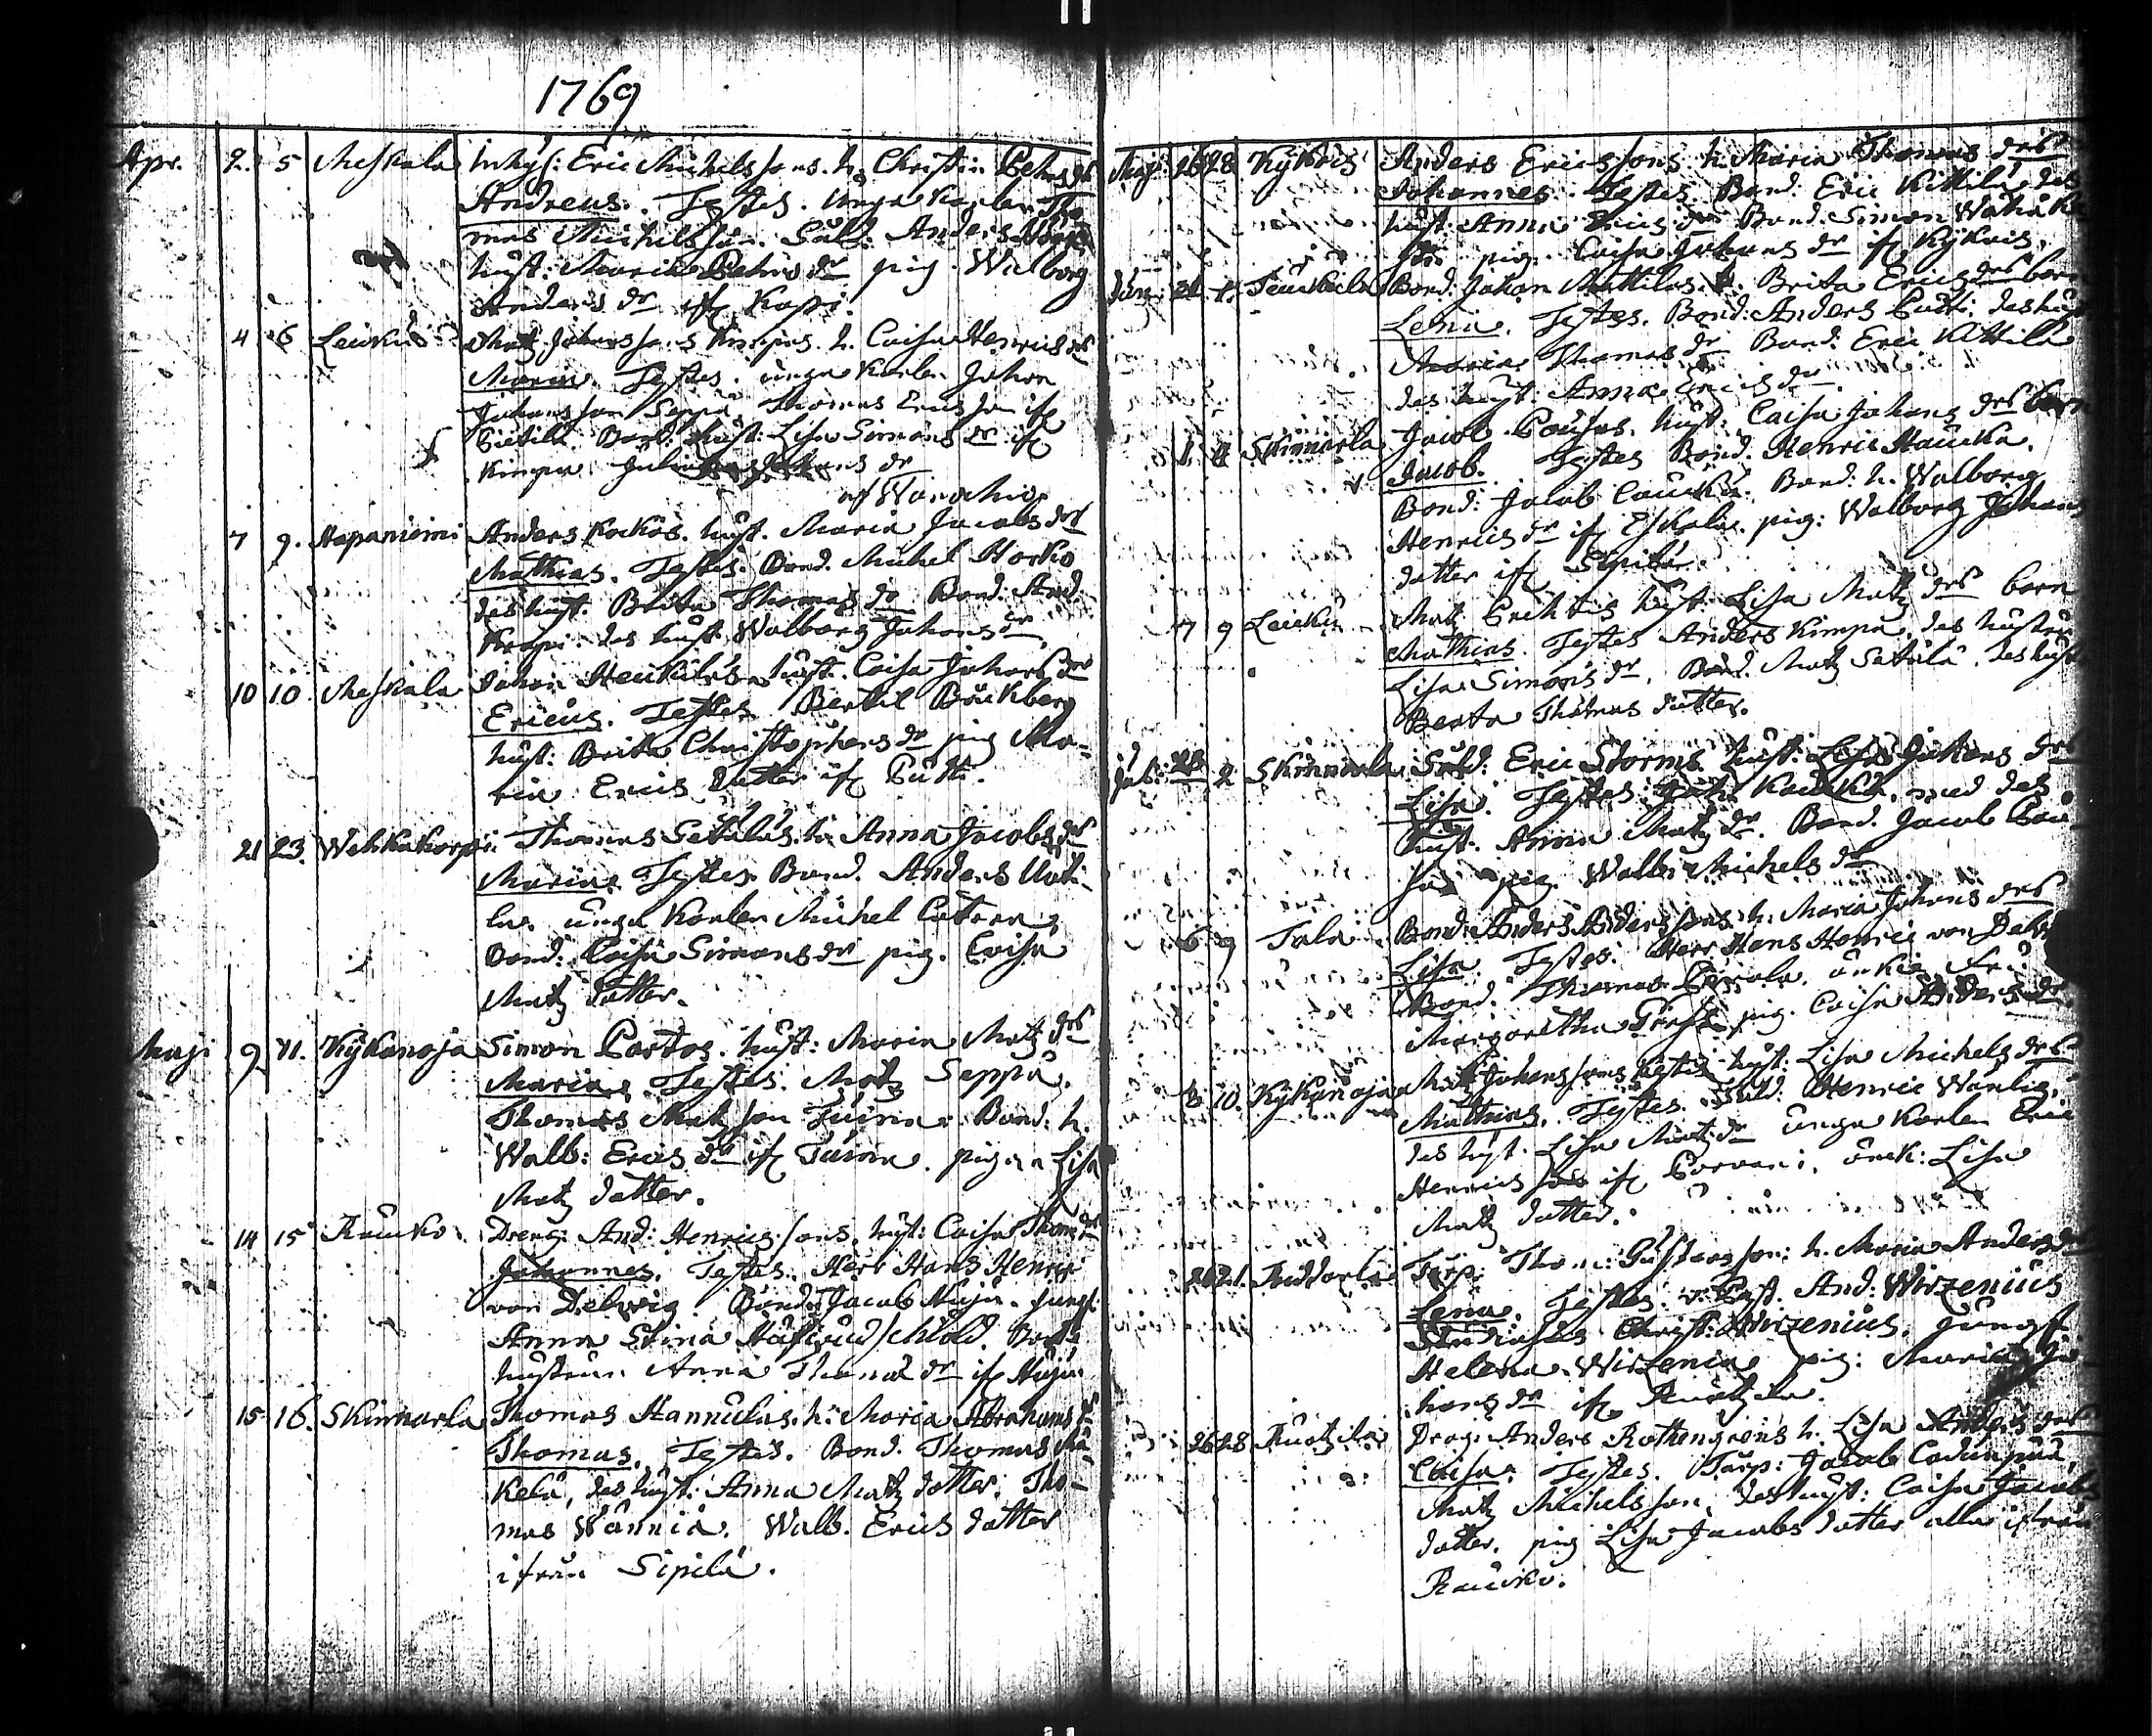 1769
Apr. 2. 5 Meskala Inhys: Eric Michelssons. h. Christin Pehrs dr
Andreas. Testes. Unga Karlen Tho
mas Michelsson. Sold: Anders
hust: Maria Pehrs dr pig. Walborg
Anders dr if Kopi.
4 6 Leikus Matz Johanssons Kimpas. h. Caisa Henrics drs
Maria. Testes. unga Karlen Johan
Johansson Seppä, Thomas Ericsson if
Pietilä Bond: hust: Lisa Simons dr if
Kimpa
af
7 9. Hapaniemi Anders Kockos. hust. Maria Jacobs drs
Mathias. Testes. Bond. Michel Horko
des hust. Brita Thomas dr Bond. And.
Krapi. des hust. Walborg Johans dr
10 10. Meskala Johan Heickiläs hust. Caisa Johans drs
Ericus. Testes Bertil Böckberg
hust: Brita Christophers dr pig Ma=
ria Erics dotter if Putti.
21 23. Wehkakorpi. Thomas Setäläs. h. Anna Jacobs drs
Maria. Testes. Bond. Anders Uoti-
la. unga Karlen Michel
Bond: Caisa Simons dr pig. Caisa
Matz dotter.
Maji 9 11. Kÿkänoja Simon Partos. hust: Maria Matz drs
Maria. Testes. Matz Seppä.
Thomas Matzson Tuima. Bond: h.
Walb: Erics dr if Tuima. pigan Lisa
Matz dotter.
14 15 Raucko. Dreng. And: Henricssons. hust: Caisa Thom drs
Johannes. Testes. Herr Hans Henric
von Delwig Bond: Jacob Huju. Jungf.
Anna Stina Hufwudschöld. Bond
hustrun Anna Thomas dr if Huju.
15 16. Skinnarla Thomas Hannulas. h. Maria Abrahams dr
Thomas. Testes. Bond. Thomas Mä
kelä, des hust: Anna Matz dotter. Tho-
mas Wänniä. Walb. Erics dotter
ifrån Sipilä.
Maj: 26 28. Kÿkois Anders Ericssons h. Maria Thomas drs
Johannes. Testes. Bond. Eric Kittilä, des
hust: Anna Erics dr Bond. Simon
pig. Caisa Johans dr if Kÿkois.
Jun: Bond. Johan Mattilas h. Brita Erics drs barn
Lena. Testes. Bond: Anders Putti. des hust
Maria Thomas dr Bond: Eric Kittilä
des hust: Anna Erics dr
1. 4 Skinnarla Jacob Pousas. hust: Caisa Johans drs barn
Jacob. Testes Bond. Henric Haucka.
Bond: Jacob Caucka. Bond. h. Walborg
Henrics dr if Eskola. pig: Walborg Johans
dotter if Sipilä.
7 9 Leickus Matz hust. Lisa Matz drs barn
Mathias. Testes Anders Kimpa, des hustru
Lisa Simons dr, Bond. Matz Sätälä. des hust
Beata Thomas dotter.
Jul: 28 2 Skinnarla Sold: Eric Storms. hust. Lisa Johans drs
Lisa. Testes. Kaucka, med des
hust. Anna Matz dr. Bond. Jacob Pou-
sa pig. Walb. Michels dr
6 9 Tala Bond: Anders Anderssons h. Maria Johans drs
Lisa. Testes. Herr Hans Henric von Delw
Bond. Thomas
Margaretha pig. Caisa Anders dr
8 10. Kÿkänoja Matz Johanssons hust: Lisa Michels drs
Mathias. Testes. Sold. Henric Wänlig,
des hust. Lisa Matz dr unga Karlen Eric
Henricsson if Porvari. änck: Lisa
Matz dotter.
20 21. Torp: Thom: Gustavsson: h. Maria Anders dr
Lena. Testes. And: Wirzenius
Christ: Wirzenius. Jungf
Helena Wirzenia pig: Maria Jo
hans dr if Ruotzila.
26 28 Ruotzila Drag. Anders Rothengrens h. Lisa Anders drs
Caisa. Testes. Torp: Jacob
Matz Michelsson, des hust: Caisa Jacobs
dotter. pig Lisa Jacobs dotter alla ifrån
Raucko.